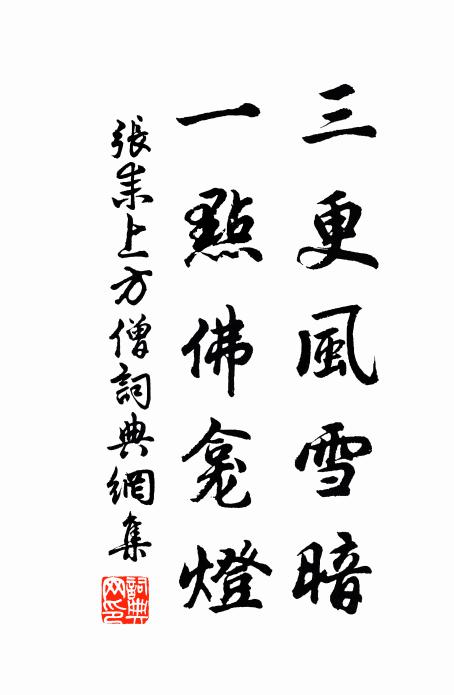 三更風雪暗
一點佛龕燈
張耒上方僧詞典網集
詞典网印